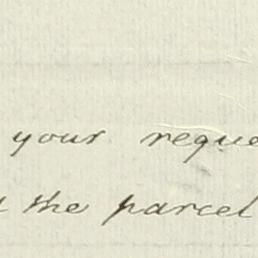 your reque
the parcel